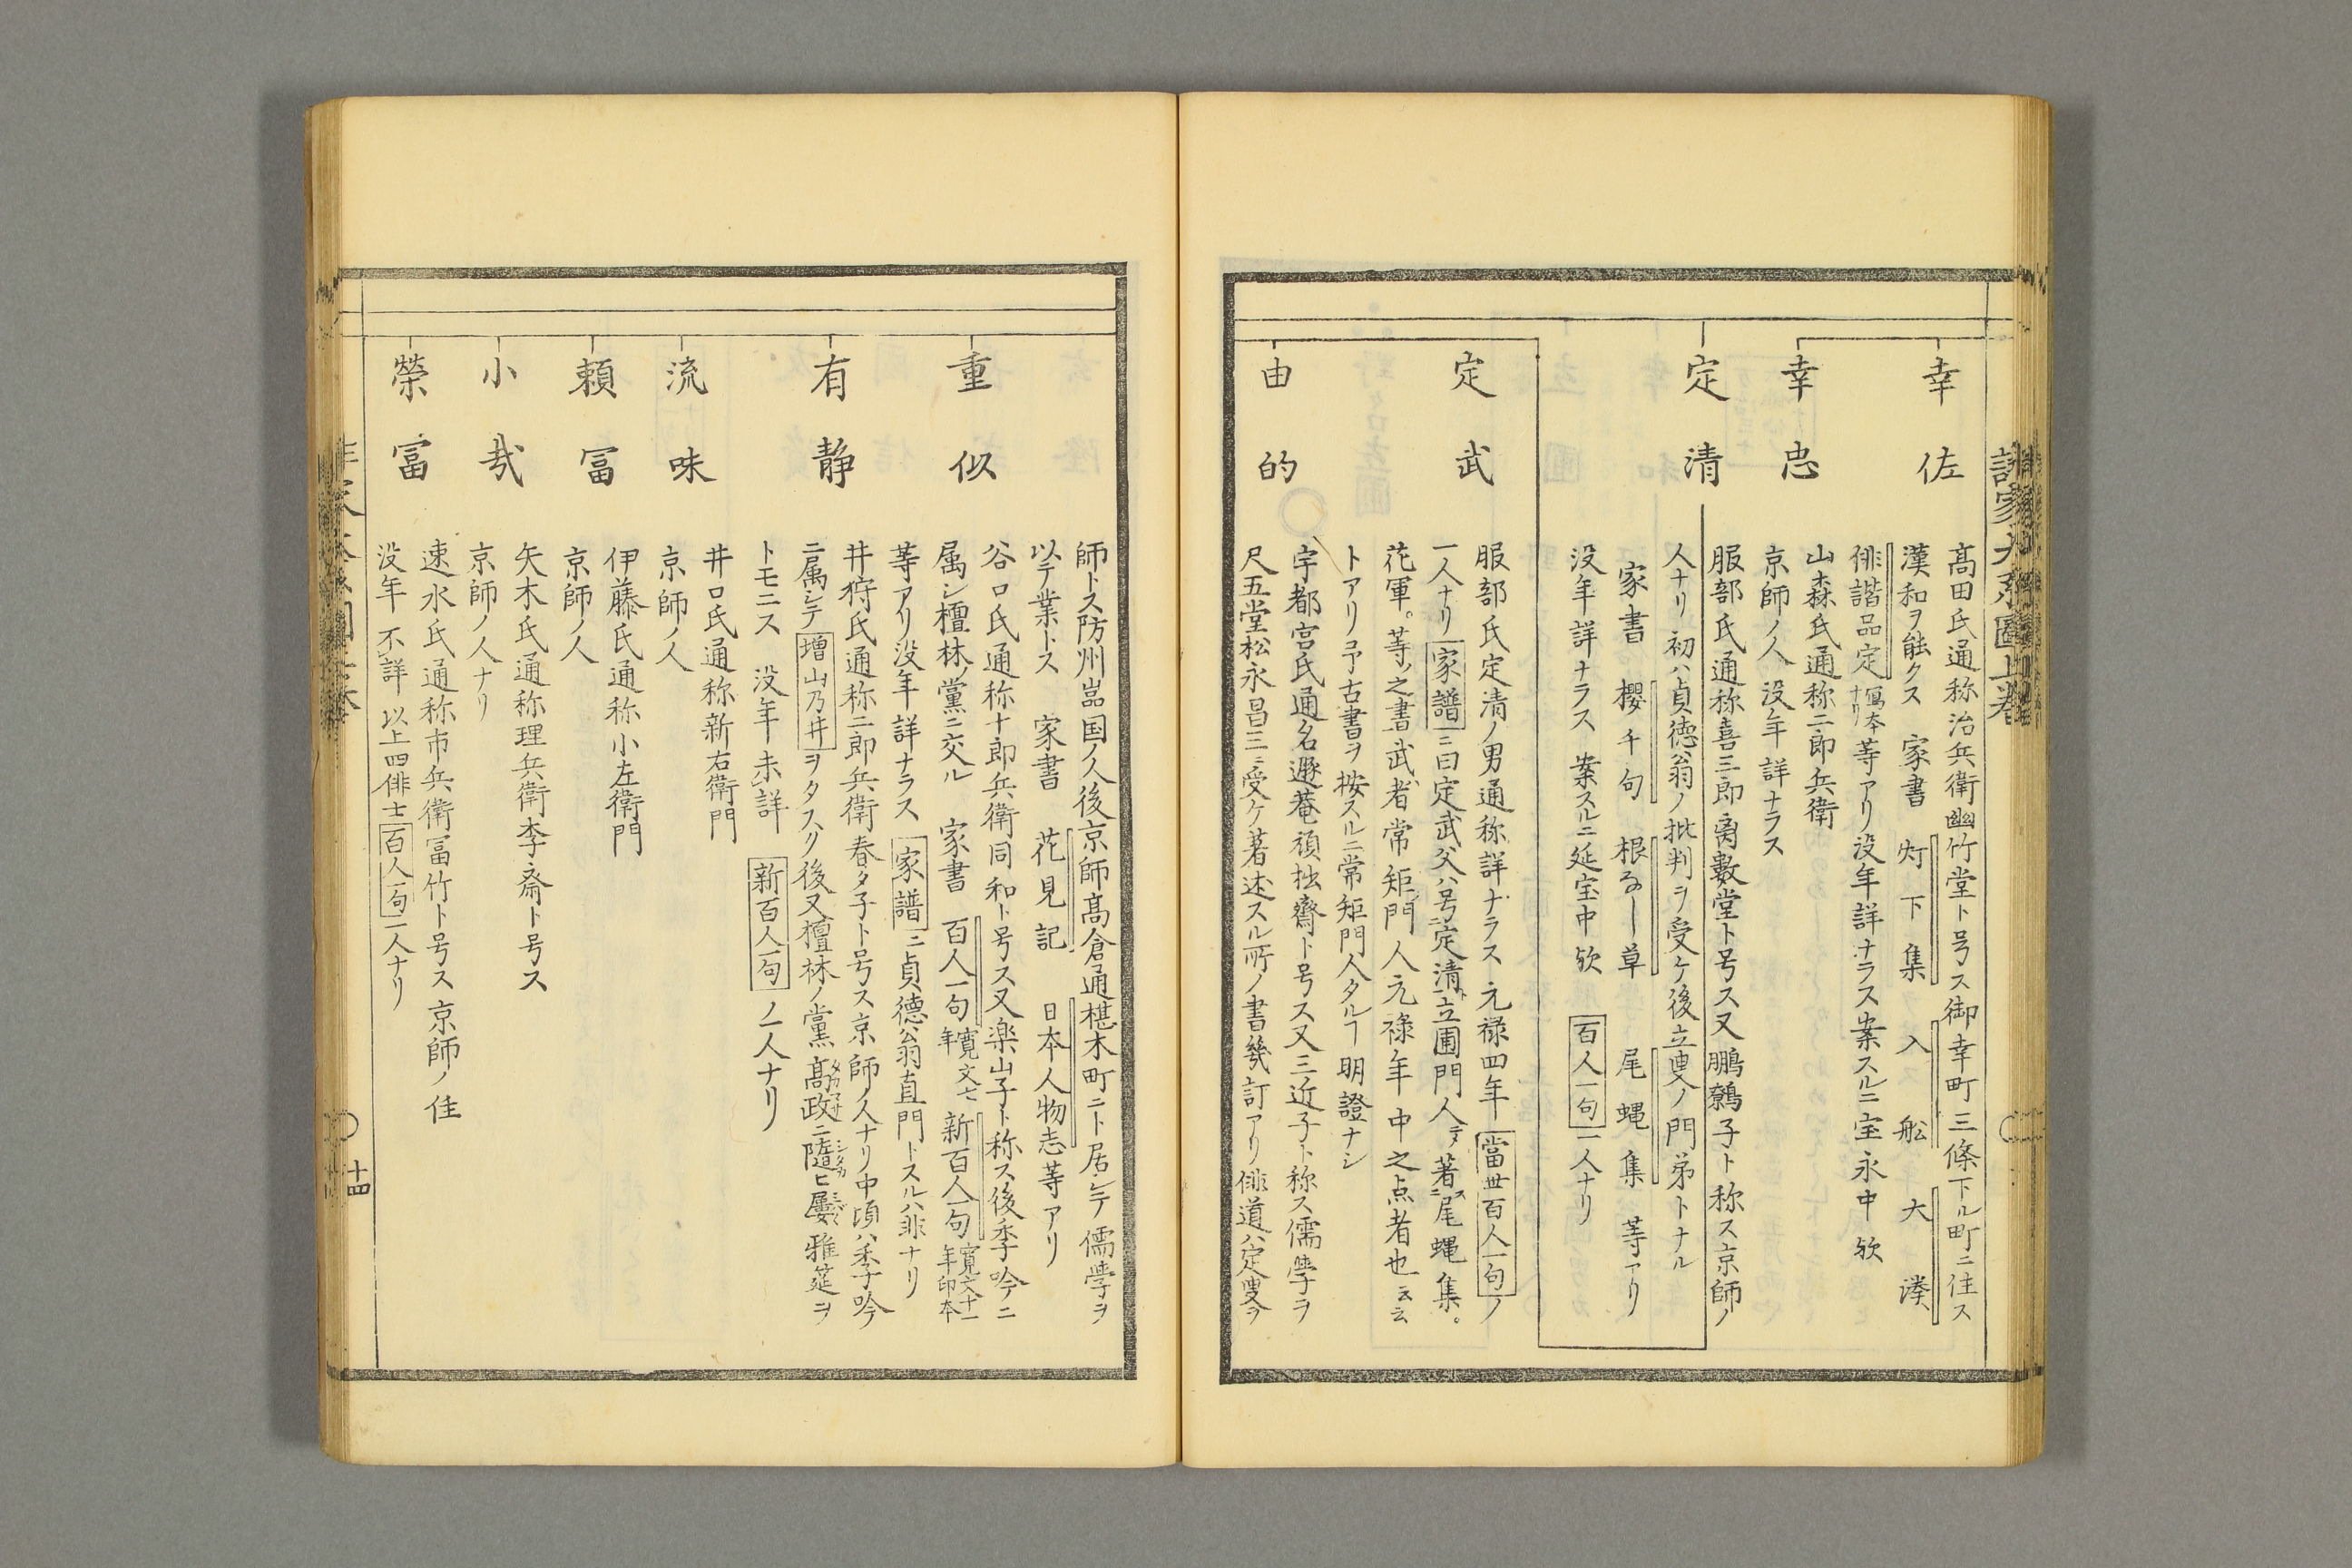 幸佐
髙田氏通称治兵衛幽竹堂ト号ス御幸町三條下ル町ニ住ス
漢和ヲ能クス 家書 灯下集 入舩 大湊
俳諧品定 写本ナリ 等アリ没年詳ナラス案スルニ宝永中欤
幸忠
山森氏通称二郎兵衛
京師ノ人 没年詳ナラス
定清
服部氏通称喜三郎离數堂ト号ス又鵬鷯子ト称ス京師ノ
人ナリ初ハ貞徳翁ノ批判ヲ受ケ後立圃ノ門弟トナル
家書 櫻千句 根なし草 尾蝿集 等アリ
没年詳ナラス 案スルニ延宝中欤 百人一句一人ナリ
定武
服部氏定清ノ男通称詳ナラス元禄四年當世百人一句ノ
一人ナリ家譜ニ曰定武父ハ号定清ト立圃門人ニテ著ス尾蝿集。
花軍。等ノ之書武者常矩門人元禄年中之点者也云云
トアリ予古書ヲ按スルニ常矩門人タルヿ明證ナシ
由的
宇都宮氏通名遯菴頑拙齋ト号ス又三近子ト称ス儒學ヲ
尺五堂松永昌三ニ受ケ著述スル所ノ書幾計アリ俳道ハ定叟ヲ
師トス防州嵓国ノ人後京師髙倉通椹木町ニト居シテ儒學ヲ
以テ業トス 家書 花見記 日本人物志等アリ
重似
谷口氏通称十郎兵衛同和ト号ス又楽山子ト称ス後季吟ニ
属シ檀林ノ黨ニ交ル 家書 百人一句 寛文七年 新百人一句 寛文十一年印本
等アリ没年詳ナラス 家譜ニ貞德翁直門トスルハ非ナリ
有静
井狩氏通称二郎兵衛春夕子ト号ス京師ノ人ナリ中頃ハ季吟
ニ属シテ増山乃井ヲタスク後又檀林ノ黨髙政ニ隨ヒ屡雅莚ヲ
トモニス 没年未詳 新百人一句ノ一人ナリ
流味
井口氏通称新右衛門
京師ノ人
頼冨
伊藤氏通称小左衛門
京師ノ人
小哉
矢木氏通称理兵衛李斎ト号ス
京師ノ人ナリ
榮冨
速水氏通称市兵衛冨竹ト号ス京師ノ住
没年不詳 以上四俳士百人一句一人ナリ
十四